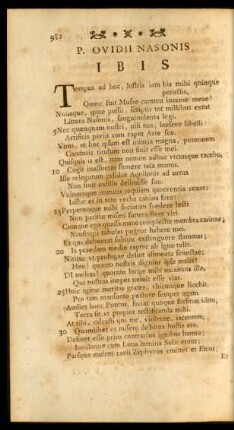 982
P. OVIDII NASONIS
IBIS
Tempus ad hoc, lustris iam bis mihi quinque
peractis,
Omne fuit Musae carmen inerme meae:
Nullaque, quae possit, scriptis tot millibus extat
Littera Nasonis, sanguinolenta legi.
5 Nec quemquam nostri, nisi nos, laesere libelli:
Artificis periit cum caput Arte sua.
Unus, et hoc ipsum est iniuria magna, perennem
Candoris titulum non sinit esse mei.
Quisquis is est, nam nomen adhuc utcunque tacebo,
10 Cogit inassuetas sumere tela manus.
Ille relegatum gelidos Aquilonis ad ortus
Non sinit exilio delituisse
Vulneraque immitis requiem quaerentia vexat:
Iactat et in toto verba foro:
15 Perpetuoque mihi sociatam foedere lecti
Non patitur miseri funera flere viri.
Cumque ego quassa meae complectar membra carinae,
Naufragii tabulas pugnat habere mei.
Et qui debuerat subitas extinguere flammas,
20 Is praedam medio raptor ab igne
Nititur ut profugae desint alimenta senectae:
Heu! quanto est nostris dignior ipse malis!
Di melius! quorum longe mihi maximus ille,
Qui nostras inopes noluit esse vias.
25 Huic igitur meritas grates, ubicunque licebit,
Pro tam mansueto pectore semper agam.
Audiet hoc Pontus. faciet quoque forsitan idem,
Terra sit ut propior testificanda mihi.
At tibi, calcasti qui me, violente, iacentem,
30 Quamlibet et misero debitus hostis ero.
Desinet esse prius contrarius ignibus humor:
Iunctaque cum Luna lumina Solis erunt:
Parsque eadem caeli Zephyros emittet et Euros:
Et